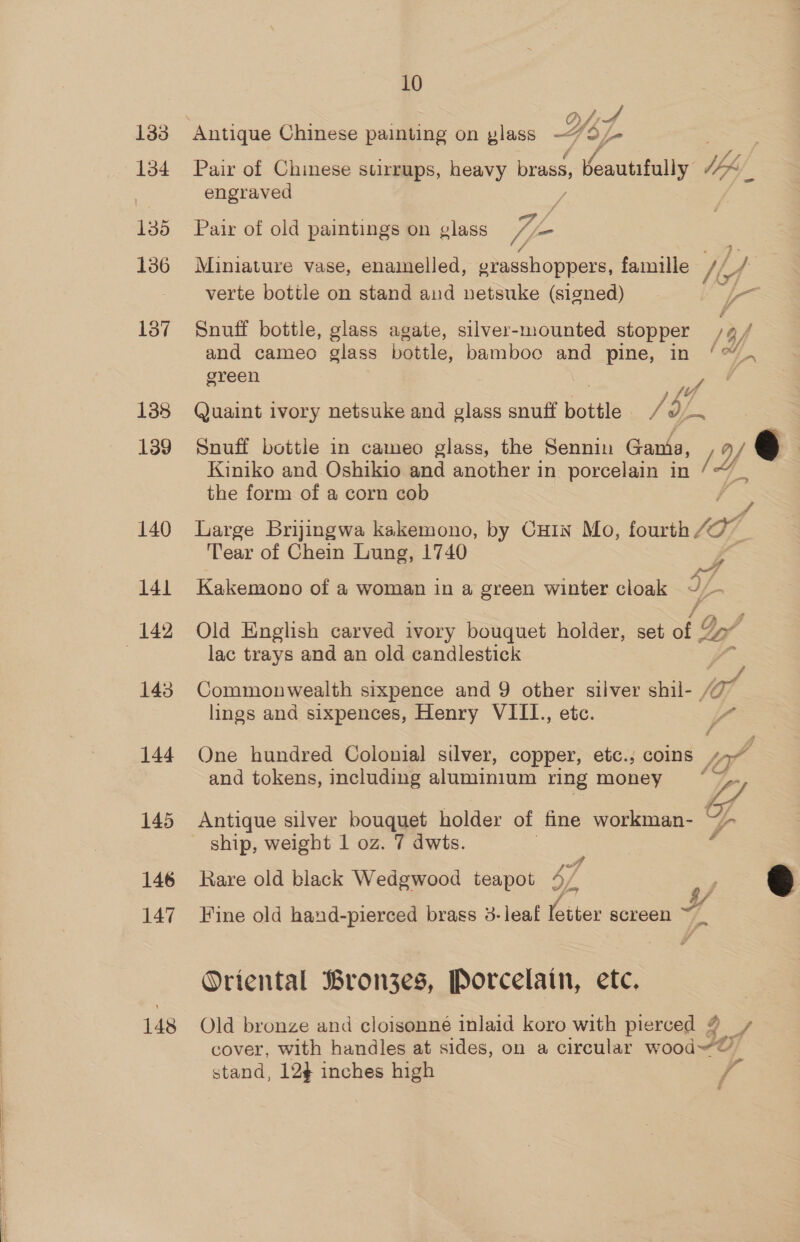 10
133 Antique Chinese painting on glass
134 Pair of Chinese stirrups, heavy brass, beautifully
engraved
135 Pair of old paintings on glass 7/-
136 Miniature vase, enamelled, grasshoppers, famille
verte bottle on stand and netsuke (signed)
137 Snuff bottle, glass agate, silver-mounted stopper
and cameo glass bottle, bamboo and pine, in
green
138 Quaint ivory netsuke and glass snuff bottle
139 Snuff bottle in cameo glass, the Sennin Gama,
Kiniko and Oshikio and another in porcelain in
the form of a corn cob
140 Large Brijingwa kakemono, by CHIN Mo, fourth
Tear of Chein Lung, 1740
141 Kakemono of a woman in a green winter cloak
142 Old English carved ivory bouquet holder, set of
lac trays and an old candlestick
143 Commonwealth sixpence and 9 other silver shil-
lings and sixpences, Henry VIII., etc.
144 One hundred Colonial silver, copper, etc., coins
and tokens, including aluminium ring money
145 Antique silver bouquet holder of fine workman-
ship, weight 1 oz. 7 dwts.
146 Rare old black Wedgwood teapot
147 Fine old hand-pierced brass 3-leaf letter screen
Oriental Bronzes, Porcelain, etc.
148 Old bronze and cloisonné inlaid koro with pierced
cover, with handles at sides, on a circular wood
stand, 12¾ inches high